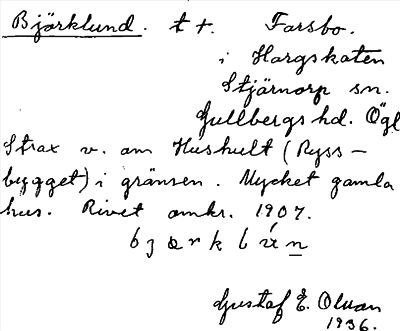 Björklund. t t. Farsbo.
i Hargskaten
Stjärnorp sn.
Gullbergs hd. Ögl
Strax v. om Hushult (Ryss-
bygget) i gränsen. Mycket gamla
hus. Rivet omkr. 1907.
Gustaf E. Olsson
1936.